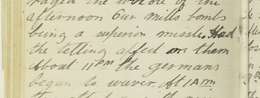 raged the whole of the
afternoon Our mills bombs
being a superior missle. Had
the telling affect on them
About 11 pm the germans
began to waver. At 1 am